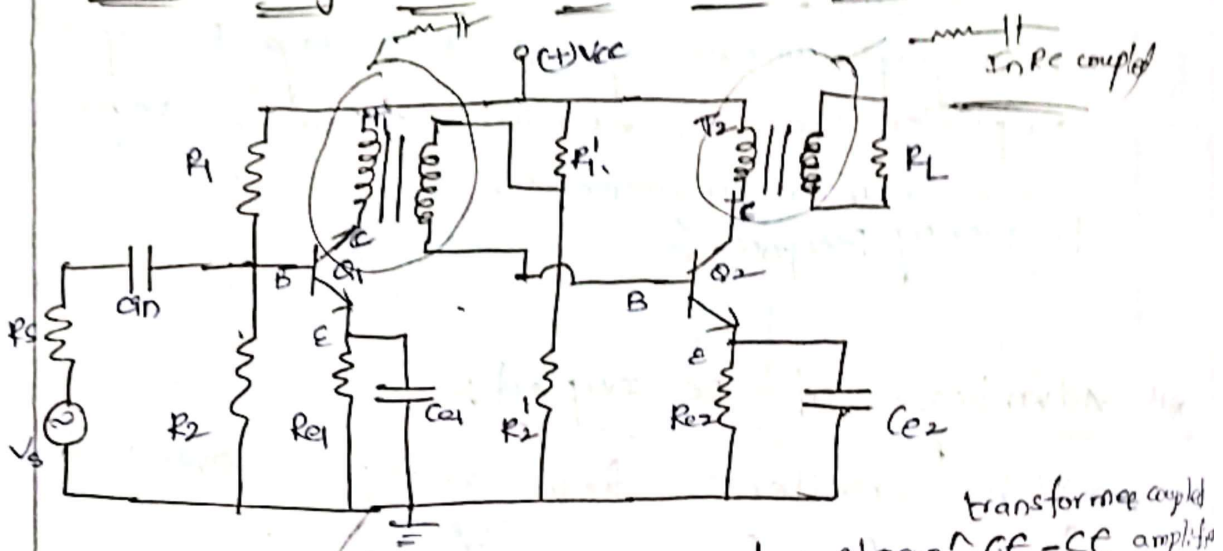 (+)Vcc
In RC coupled
R1
T1
R1'
T2
RL
C
C
Q1
Q2
B
B
Cin
Rs
E
E
Vs
R2
Re1
Ce1
R2'
Re2
Ce2
transformer coupled
CE-CE amplifier